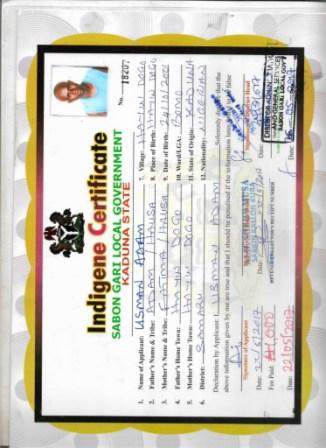 No. 18207
Indigene Certificate
SABON GARI LOCAL GOVERNMENT
KADUNA STATE
1. Name of Applicant: USMAN ADAM
2. Father's Name & Tribe: ADAM HAUSA
3. Mother's Name & Tribe: FATIMA / HAUSA
4. Father's Home Town: HAYIN DOGO
5. Mother's Home Town: HAYIN DOGO
6. District: SAMARU
7. Village: HAYIN DOGO
8. Place of Birth: HAYIN DOGO
9. Date of Birth: 24/10/2001
10. Ward/LGA: BOMO
11. State of Origin: KADUNA
12. Nationality: NIGERIAN
Declaration by Applicant: I, USMAN ADAM Solemnly declare that the
above information given by me are true and that I should be penalised if the information later proved to be false
Signature of Applicant
Date: 22/5/2017
Fee Paid: ₦1,000
Date: 22/05/2017
Signature of District Head
Date
SABON GARI LOCAL GOVT